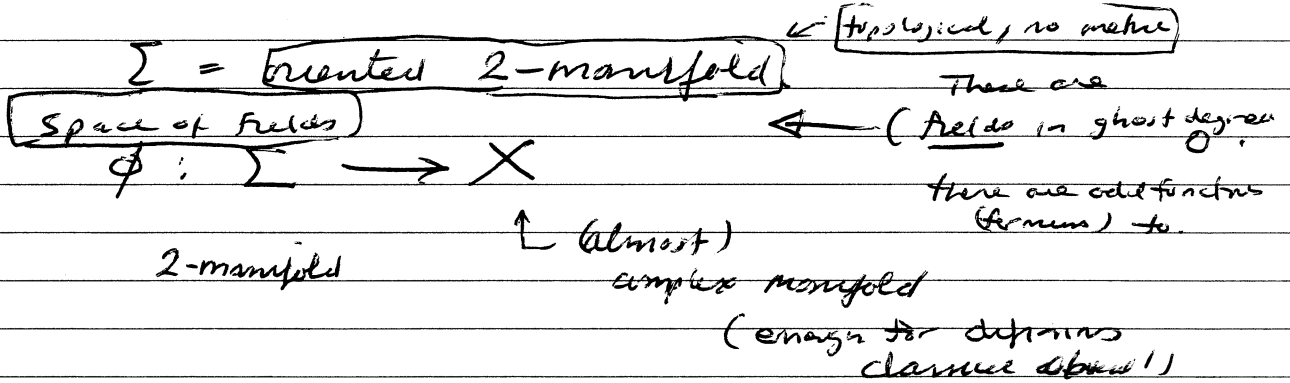 topological, no metric
Σ = oriented 2-manifold
There are
Space of Fields
(fields in ghost degree
0.
φ : Σ → X
there are odd functions
(fermions) to.
(almost)
2-manifold
complex manifold
(enough for defining